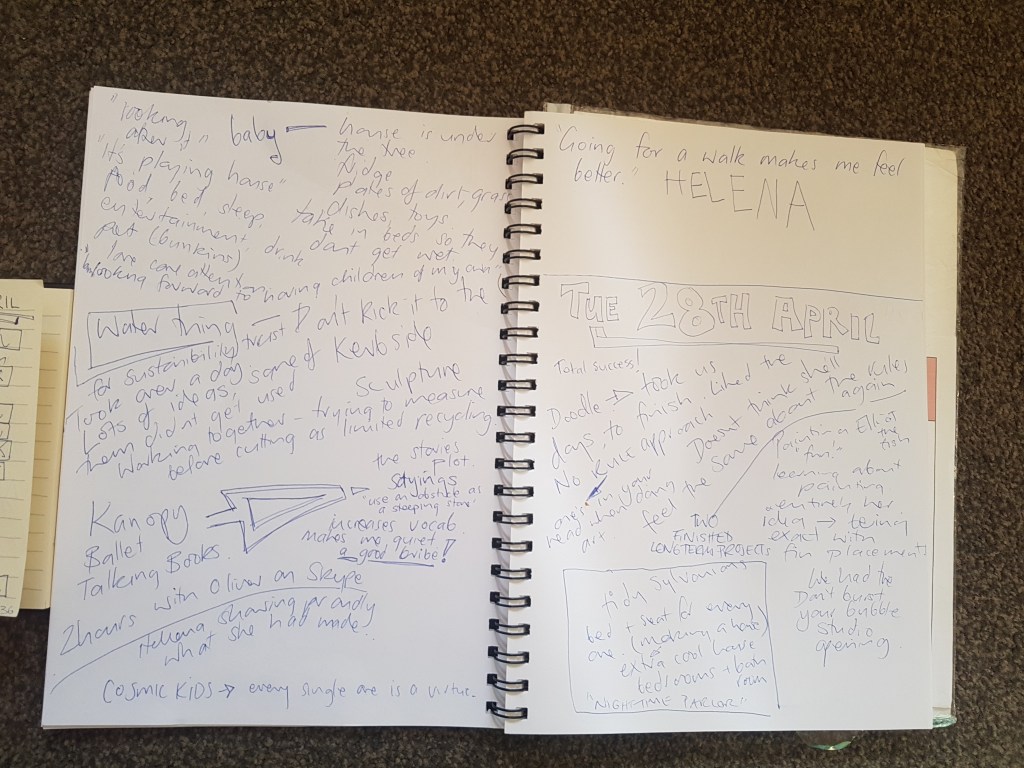 "looking
after it"
baby —
house is under
the tree
fridge
plates of dirt, grass
dishes, toys
"It's playing house"
food, bed, sleep,
entertainment,
take in beds so they
don't get wet
pet (bunkins) drink
love care attention
"looking forward to having children of my own"
Water thing — Don't kick it to the
Kerbside
for sustainability trust
Took over a day
Lots of ideas, some of
them didn't get used
Sculpture
Working together – trying to measure
before cutting as limited recycling
the stories
plot.
sayings
"use an obstacle as
a stepping stone"
increases vocab.
makes me quiet
a good bribe!
Kanopy
Ballet
Talking Books.
2 hours with Oliver on Skype
Helena sharing proudly
what she had made.
COSMIC KIDS → every single one is a virtue.
"Going for a walk makes me feel
better."
HELENA
TUE 28TH APRIL
Total success!
Doodle → took us
days to finish. Liked the
No Rule approach
Doesn't think she'll
feel the same about the rules
again
in your
head when doing
art
painting Elliot
the fish
learning about
painting
entirely her
idea → being
exact with
fin placement
TWO
FINISHED
LONG TERM PROJECTS
We had the
Don't burst
your bubble
studio
opening.
tidy Sylvanians
bed + seat for every
one. (making a house)
extra cool house
bedrooms + bath
room
"NIGHETIME PARLOR"